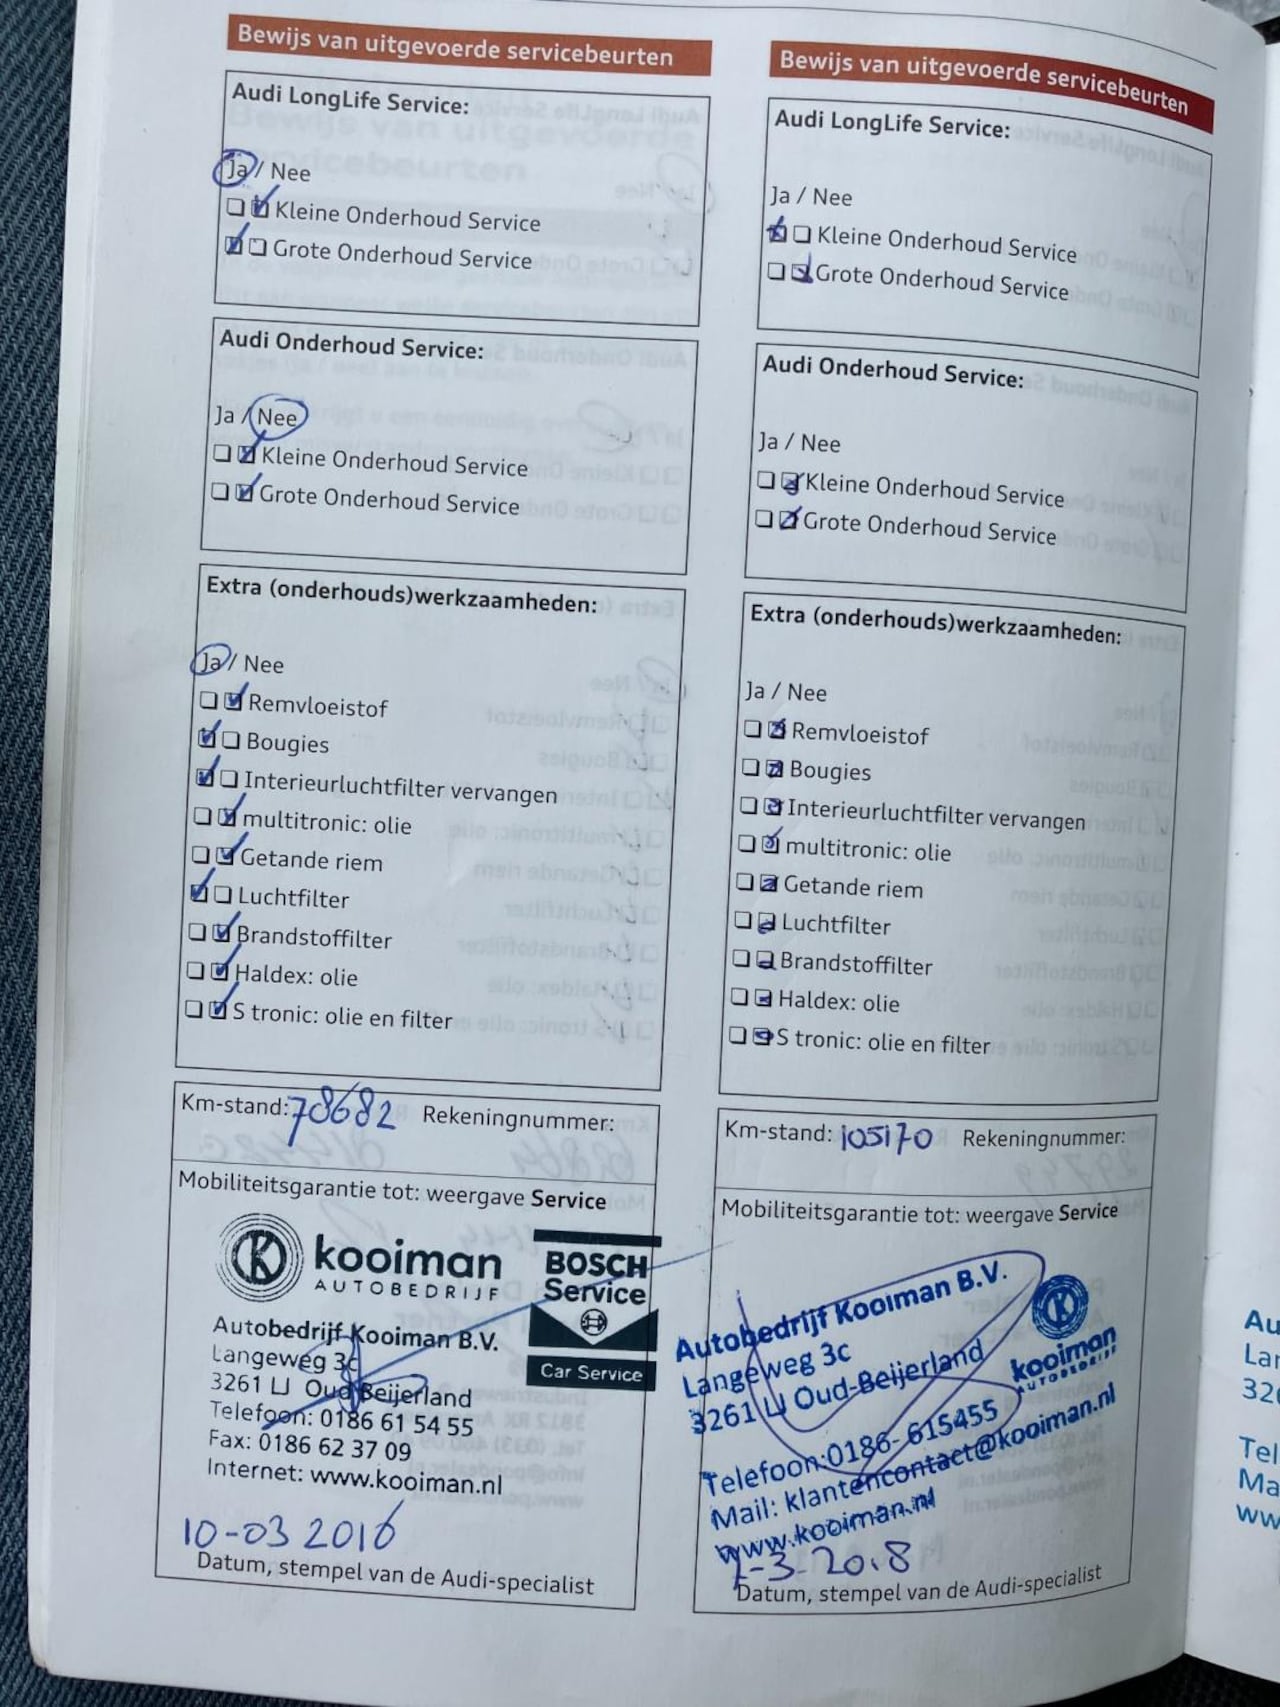 Bewijs van uitgevoerde servicebeurten
Audi LongLife Service:
Ja / Nee
Kleine Onderhoud Service
Grote Onderhoud Service
Audi Onderhoud Service:
Ja / Nee
Kleine Onderhoud Service
Grote Onderhoud Service
Extra (onderhouds)werkzaamheden:
Ja / Nee
Remvloeistof
Bougies
Interieurluchtfilter vervangen
multitronic: olie
Getande riem
Luchtfilter
Brandstoffilter
Haldex: olie
S tronic: olie en filter
Km-stand: 78682 Rekeningnummer:
Mobiliteitsgarantie tot: weergave Service
kooiman
AUTOBEDRIJF
BOSCH
Service
Car Service
Autobedrijf Kooiman B.V.
Langeweg 3c
3261 LJ Oud Beijerland
Telefoon: 0186 61 54 55
Fax: 0186 62 37 09
Internet: www.kooiman.nl
10-03 2016
Datum, stempel van de Audi-specialist
Bewijs van uitgevoerde servicebeurten
Audi LongLife Service:
Ja / Nee
Kleine Onderhoud Service
Grote Onderhoud Service
Audi Onderhoud Service:
Ja / Nee
Kleine Onderhoud Service
Grote Onderhoud Service
Extra (onderhouds)werkzaamheden:
Ja / Nee
Remvloeistof
Bougies
Interieurluchtfilter vervangen
multitronic: olie
Getande riem
Luchtfilter
Brandstoffilter
Haldex: olie
S tronic: olie en filter
Km-stand: 105170 Rekeningnummer:
Mobiliteitsgarantie tot: weergave Service
Autobedrijf Kooiman B.V.
Langeweg 3c
3261 LJ Oud-Beijerland
kooiman
AUTOBEDRIJF
Telefoon:0186-615455
Mail: klantencontact@kooiman.nl
www.kooiman.nl
-3-2018
Datum, stempel van de Audi-specialist
Au
Lar
326
Tel
Ma
ww